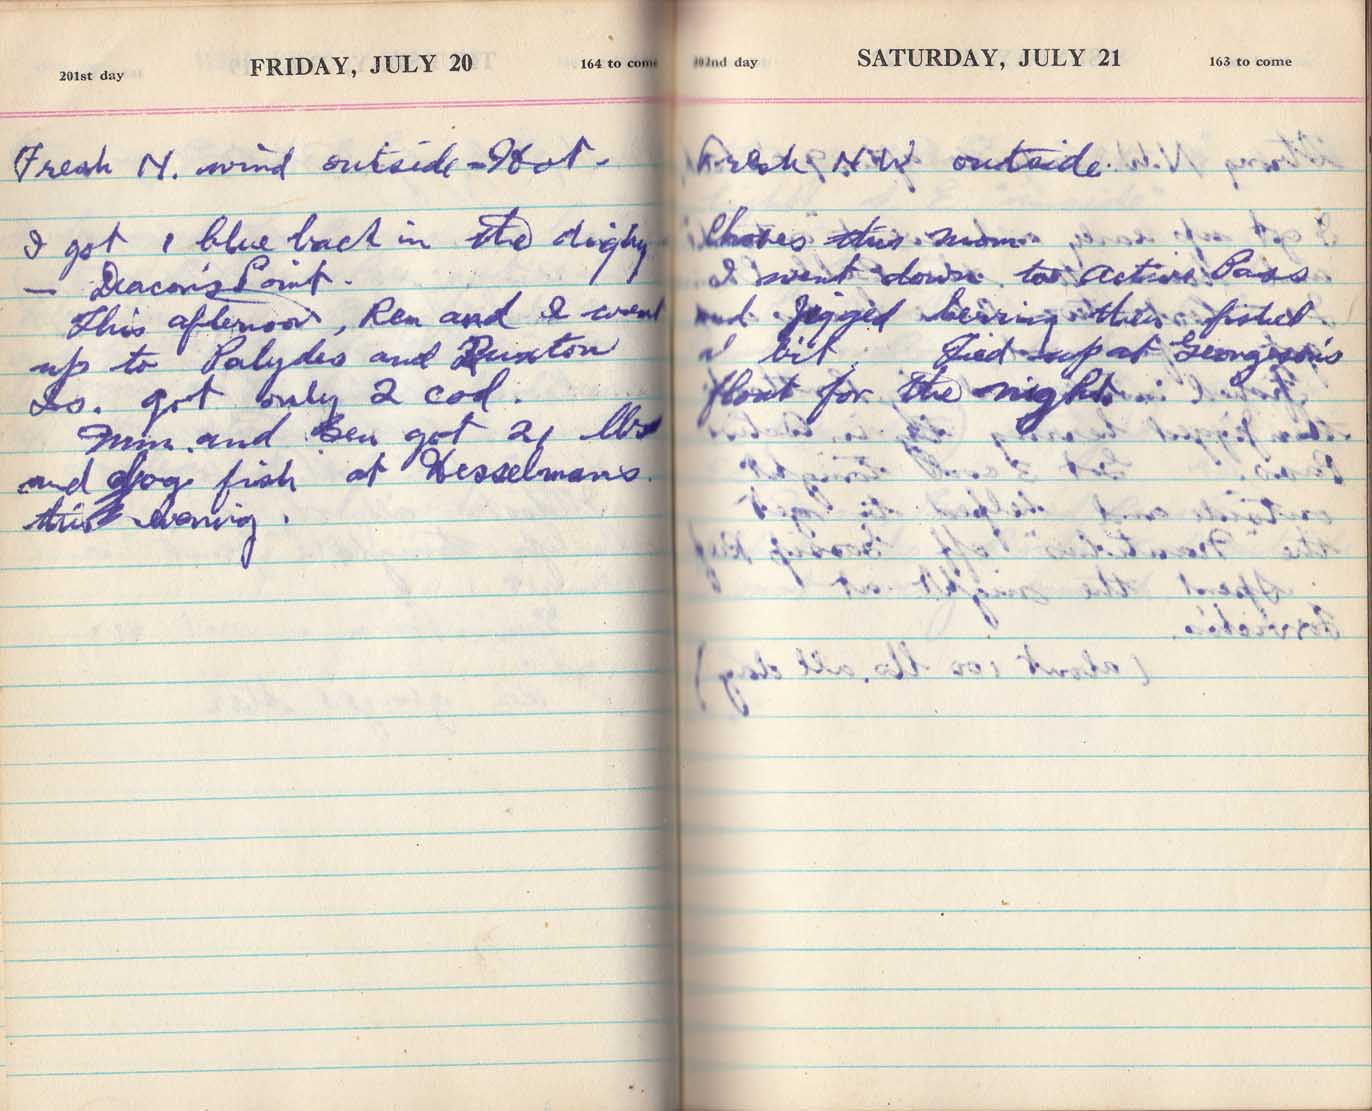 201st day FRIDAY, JULY 20 164 to come
Fresh N. wind outside - Hot -
I got 1 blue back in the dighy
- Deacon's Point.
This afternoon, Rex and I went
up to Palydes and Buxton
Is. got only 2 cod.
Mim. and Ben got 21 lbs
and dog fish at Hesselmans.
this evening.
202nd day SATURDAY, JULY 21 163 to come
Fresh N.W outside.
Chores this morn.
I went down to Active Pass
and Jigged herring then fished
a bit. Tied up at Georgeson's
float for the night.